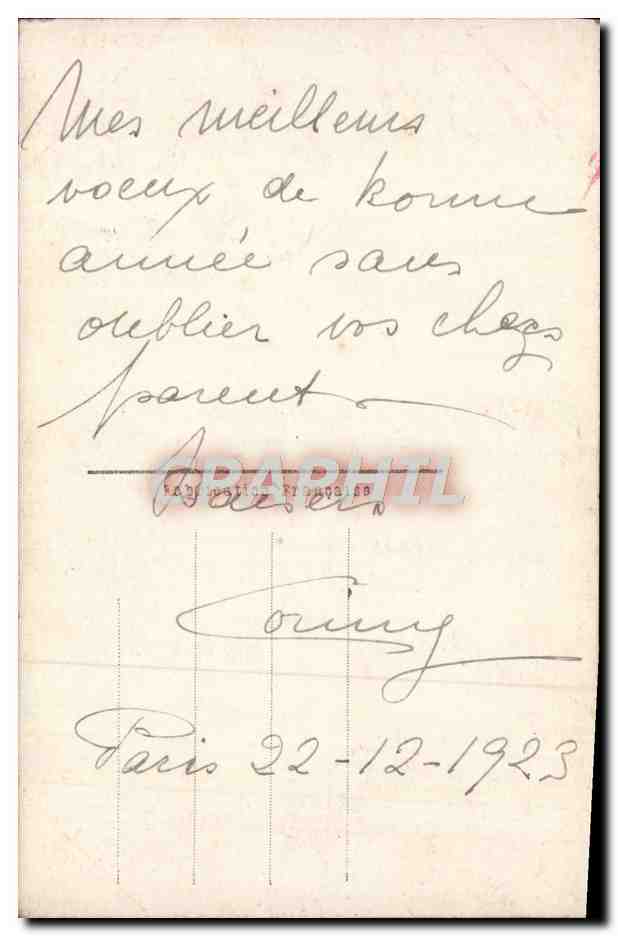 Mes meilleurs
voeux de bonne
année sans
oublier vos chers
parents
CPAPHIL
Fabrication Française
Baisers
Paris 22-12-1923